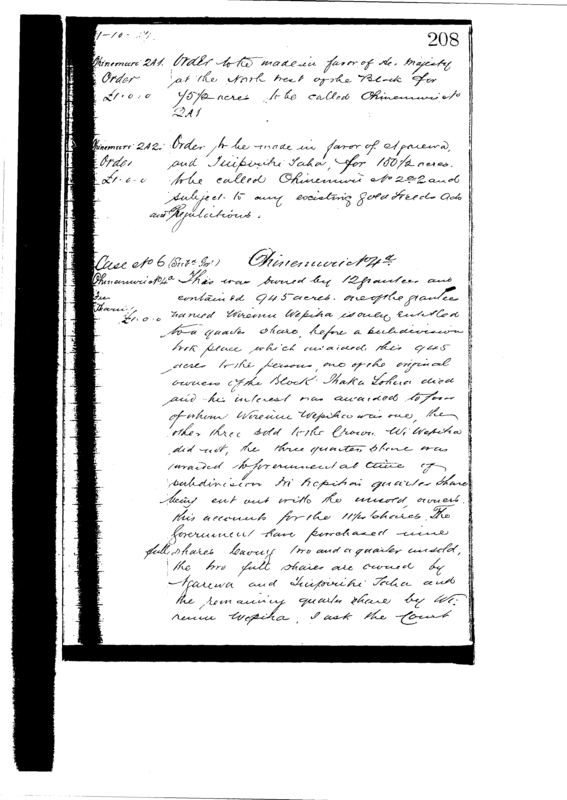 208
Ohinemuri 2A1. Order to be made in favor of Her Majesty
Order at the North West of the Block for
£1.0.0 45½ acres to be called Ohinemuri No
2A1
Ohinemuri 2A2. Order to be made in favor of Ngarewa
Order and Tuiporiki Taha, for 150½ acres.
£1.0.0 to be called Ohinemuri No 2A2 and
subject to any existing gold fields Acts
and Regulations.
Case No 6 Ohinemuri No 4A
Ohinemuri No 4A This was owned by 12 grantees and
contained 945 acres. one of the grantees
£1.0.0 named Wiremu Wepiha is only entitled
to a quarter share, before a subdivision
took place which awarded this 945
acres to the persons, one of the original
owners of the Block died
and his interest was awarded to four
of whom Wiremu Wepiha was one, the
other three sold to the Crown. Wi Wepiha
did not, the three quarter share was
awarded to Government at time of
subdivision Wi Wepiha's quarter share
being cut out with the unsold owners
this accounts for the shares. The
Government have purchased nine
full shares leaving two and a quarter unsold,
the two full shares are owned by
Ngarewa and Tuiporiki Taha and
the remaining quarter share by Wi-
remu Wepiha. I ask the Court